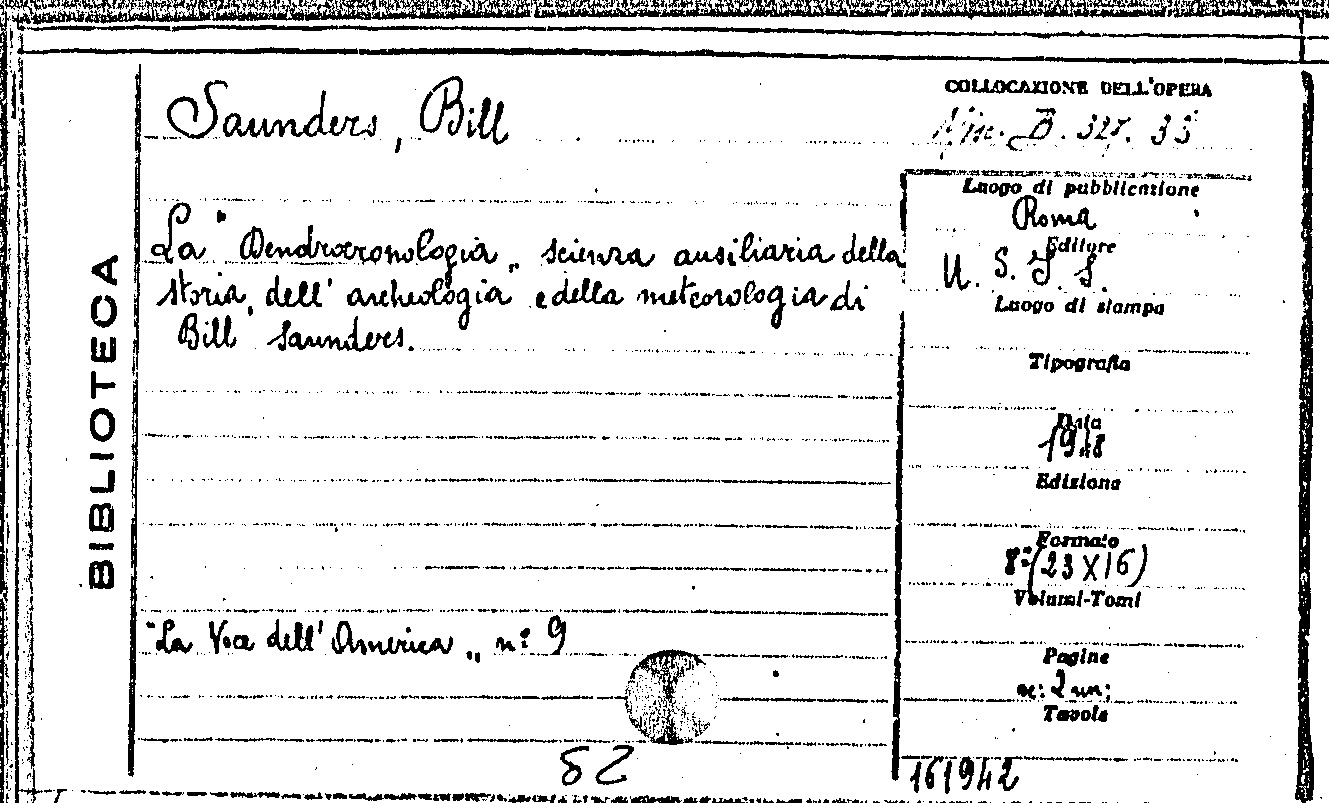 BIBLIOTECA
Saunders, Bill
La "Dendrocronologia„ scienza ausiliaria della
storia, dell' archeologia e della meteorologia di
Bill Saunders.
"La Voce dell' America„ n: 9
52
COLLOCAZIONE DELL'OPERA
Min. B. 327. 35
Luogo di pubblicazione
Roma
Editore
U. S. I. S.
Luogo di stampa
Tipografia
Data
Edizione
Formato
8:(23X16)
Volumi-Tomi
Pagine
2
Tavole
161942